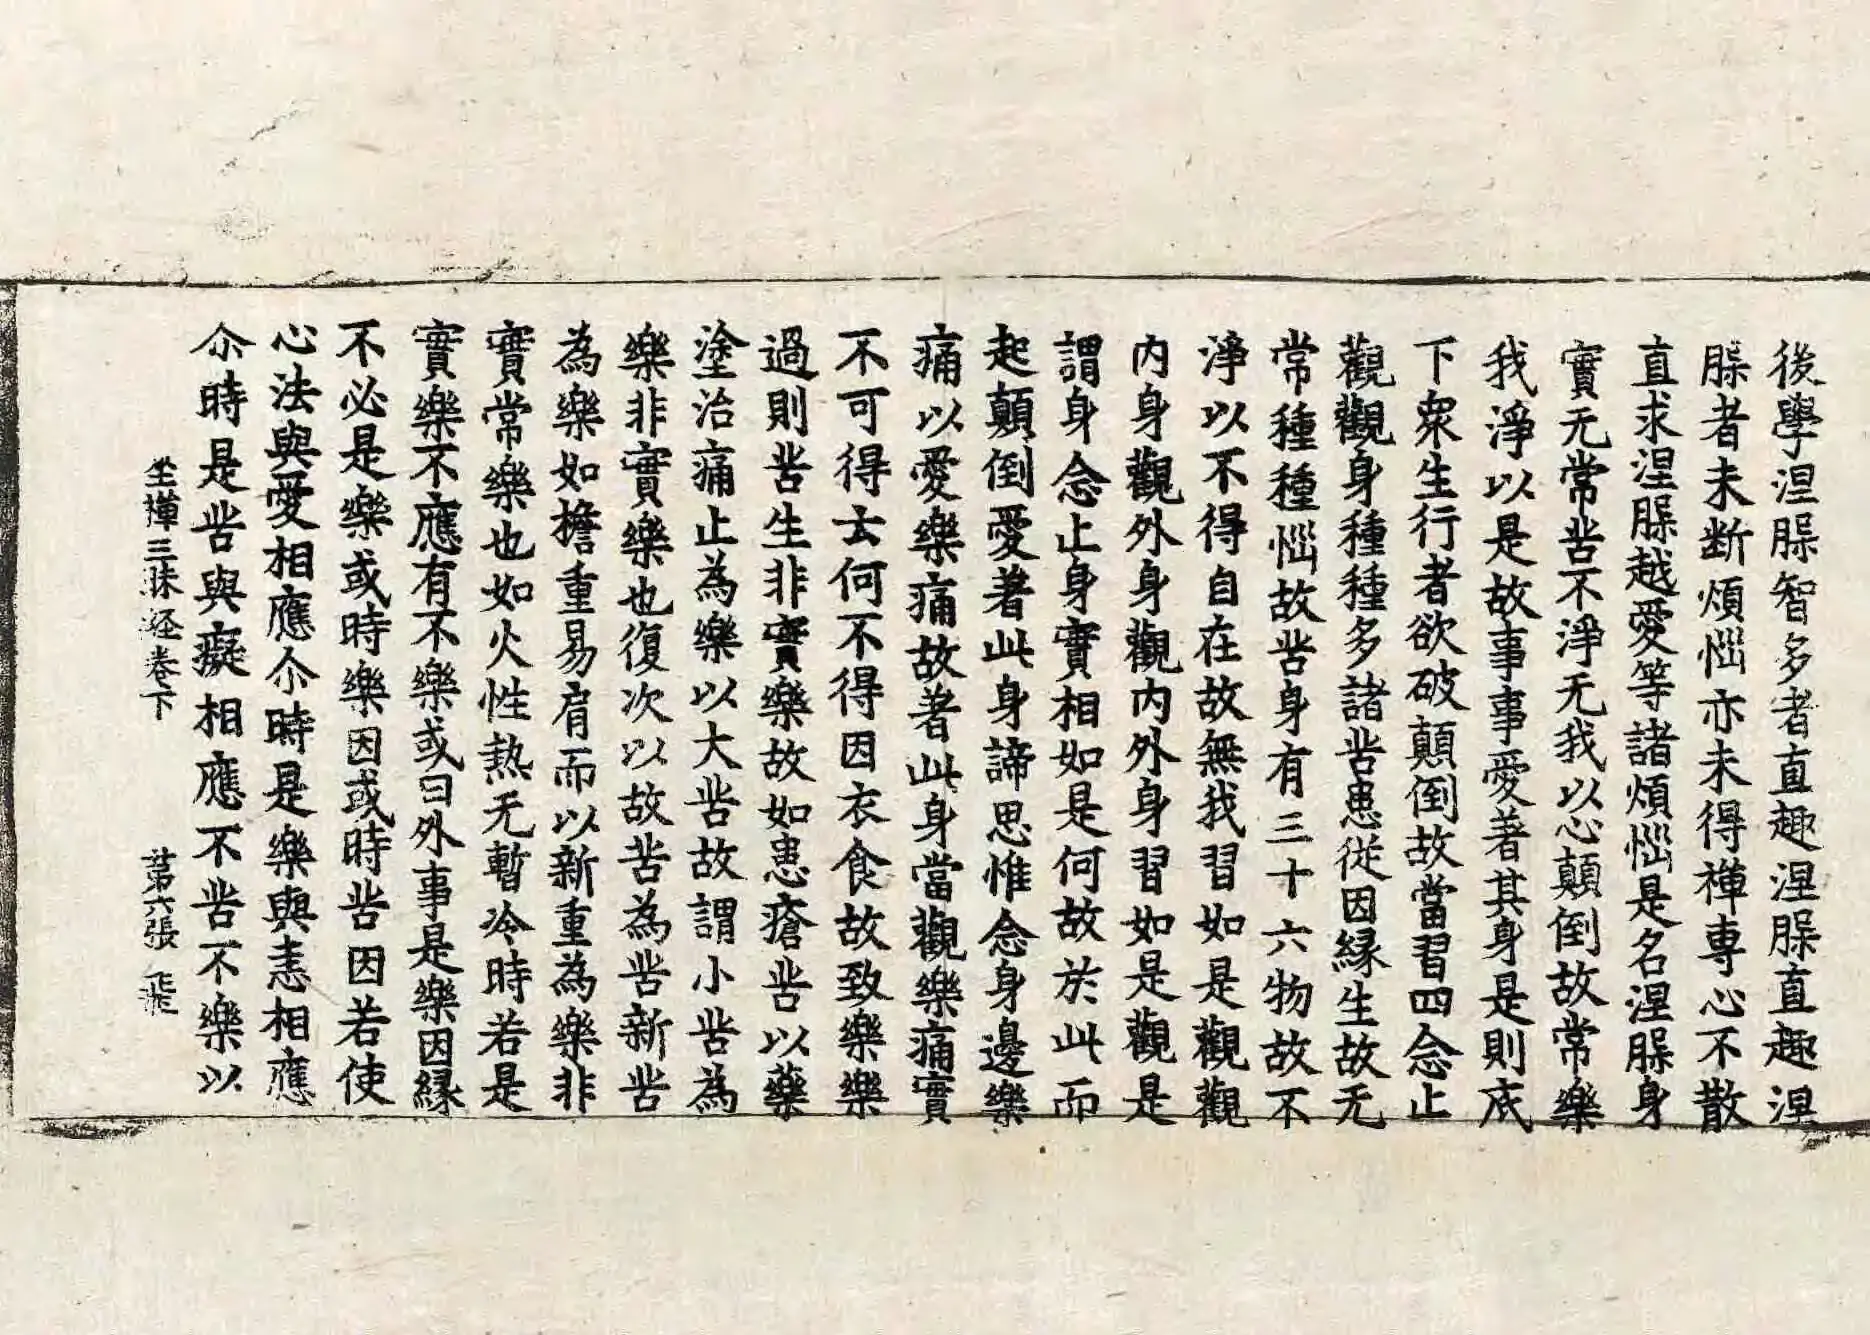 後學涅槃智多者直趣涅槃直趣涅
槃者未断煩惱亦未得禪專心不散
直求涅槃越愛等諸煩惱是名涅槃身
實无常苦不淨无我以心顛倒故常樂
我淨以是故事事愛著其身是則底
下衆生行者欲破顛倒故當習四念止
觀觀身種種多諸苦患從因緣生故无
常種種惱故苦身有三十六物故不
淨以不得自在故無我習如是觀觀
内身觀外身觀内外身習如是觀是
謂身念止身實相如是何故於此而
起顛倒愛著此身諦思惟念身邊樂
痛以愛樂痛故著此身當觀樂痛實
不可得云何不得因衣食故致樂樂
過則苦生非實樂故如患瘡苦以藥
塗治痛止為樂以大苦故謂小苦為
樂非實樂也復次以故苦為苦新苦
為樂如擔重易肩而以新重為樂非
實常樂也如火性熱无暫冷時若是
實樂不應有不樂或曰外事是樂因緣
不必是樂或時樂因或時苦因若使
心法與愛相應尒時是樂與恚相應
尒時是苦與癡相應不苦不樂以
坐禪三昧経卷下 苐六張 飛